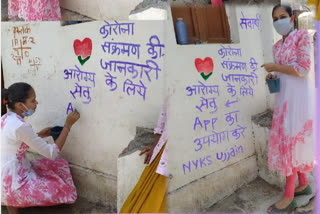 कोरोना
सक्रमण की
जानकारी
के लिये
आरोग्य
सेतु
A
कोरोना
सक्रमण की
जानकारी
के लिये
आरोग्य
सेतु ←
App का
उपयोग करे
NYKS Ujjain